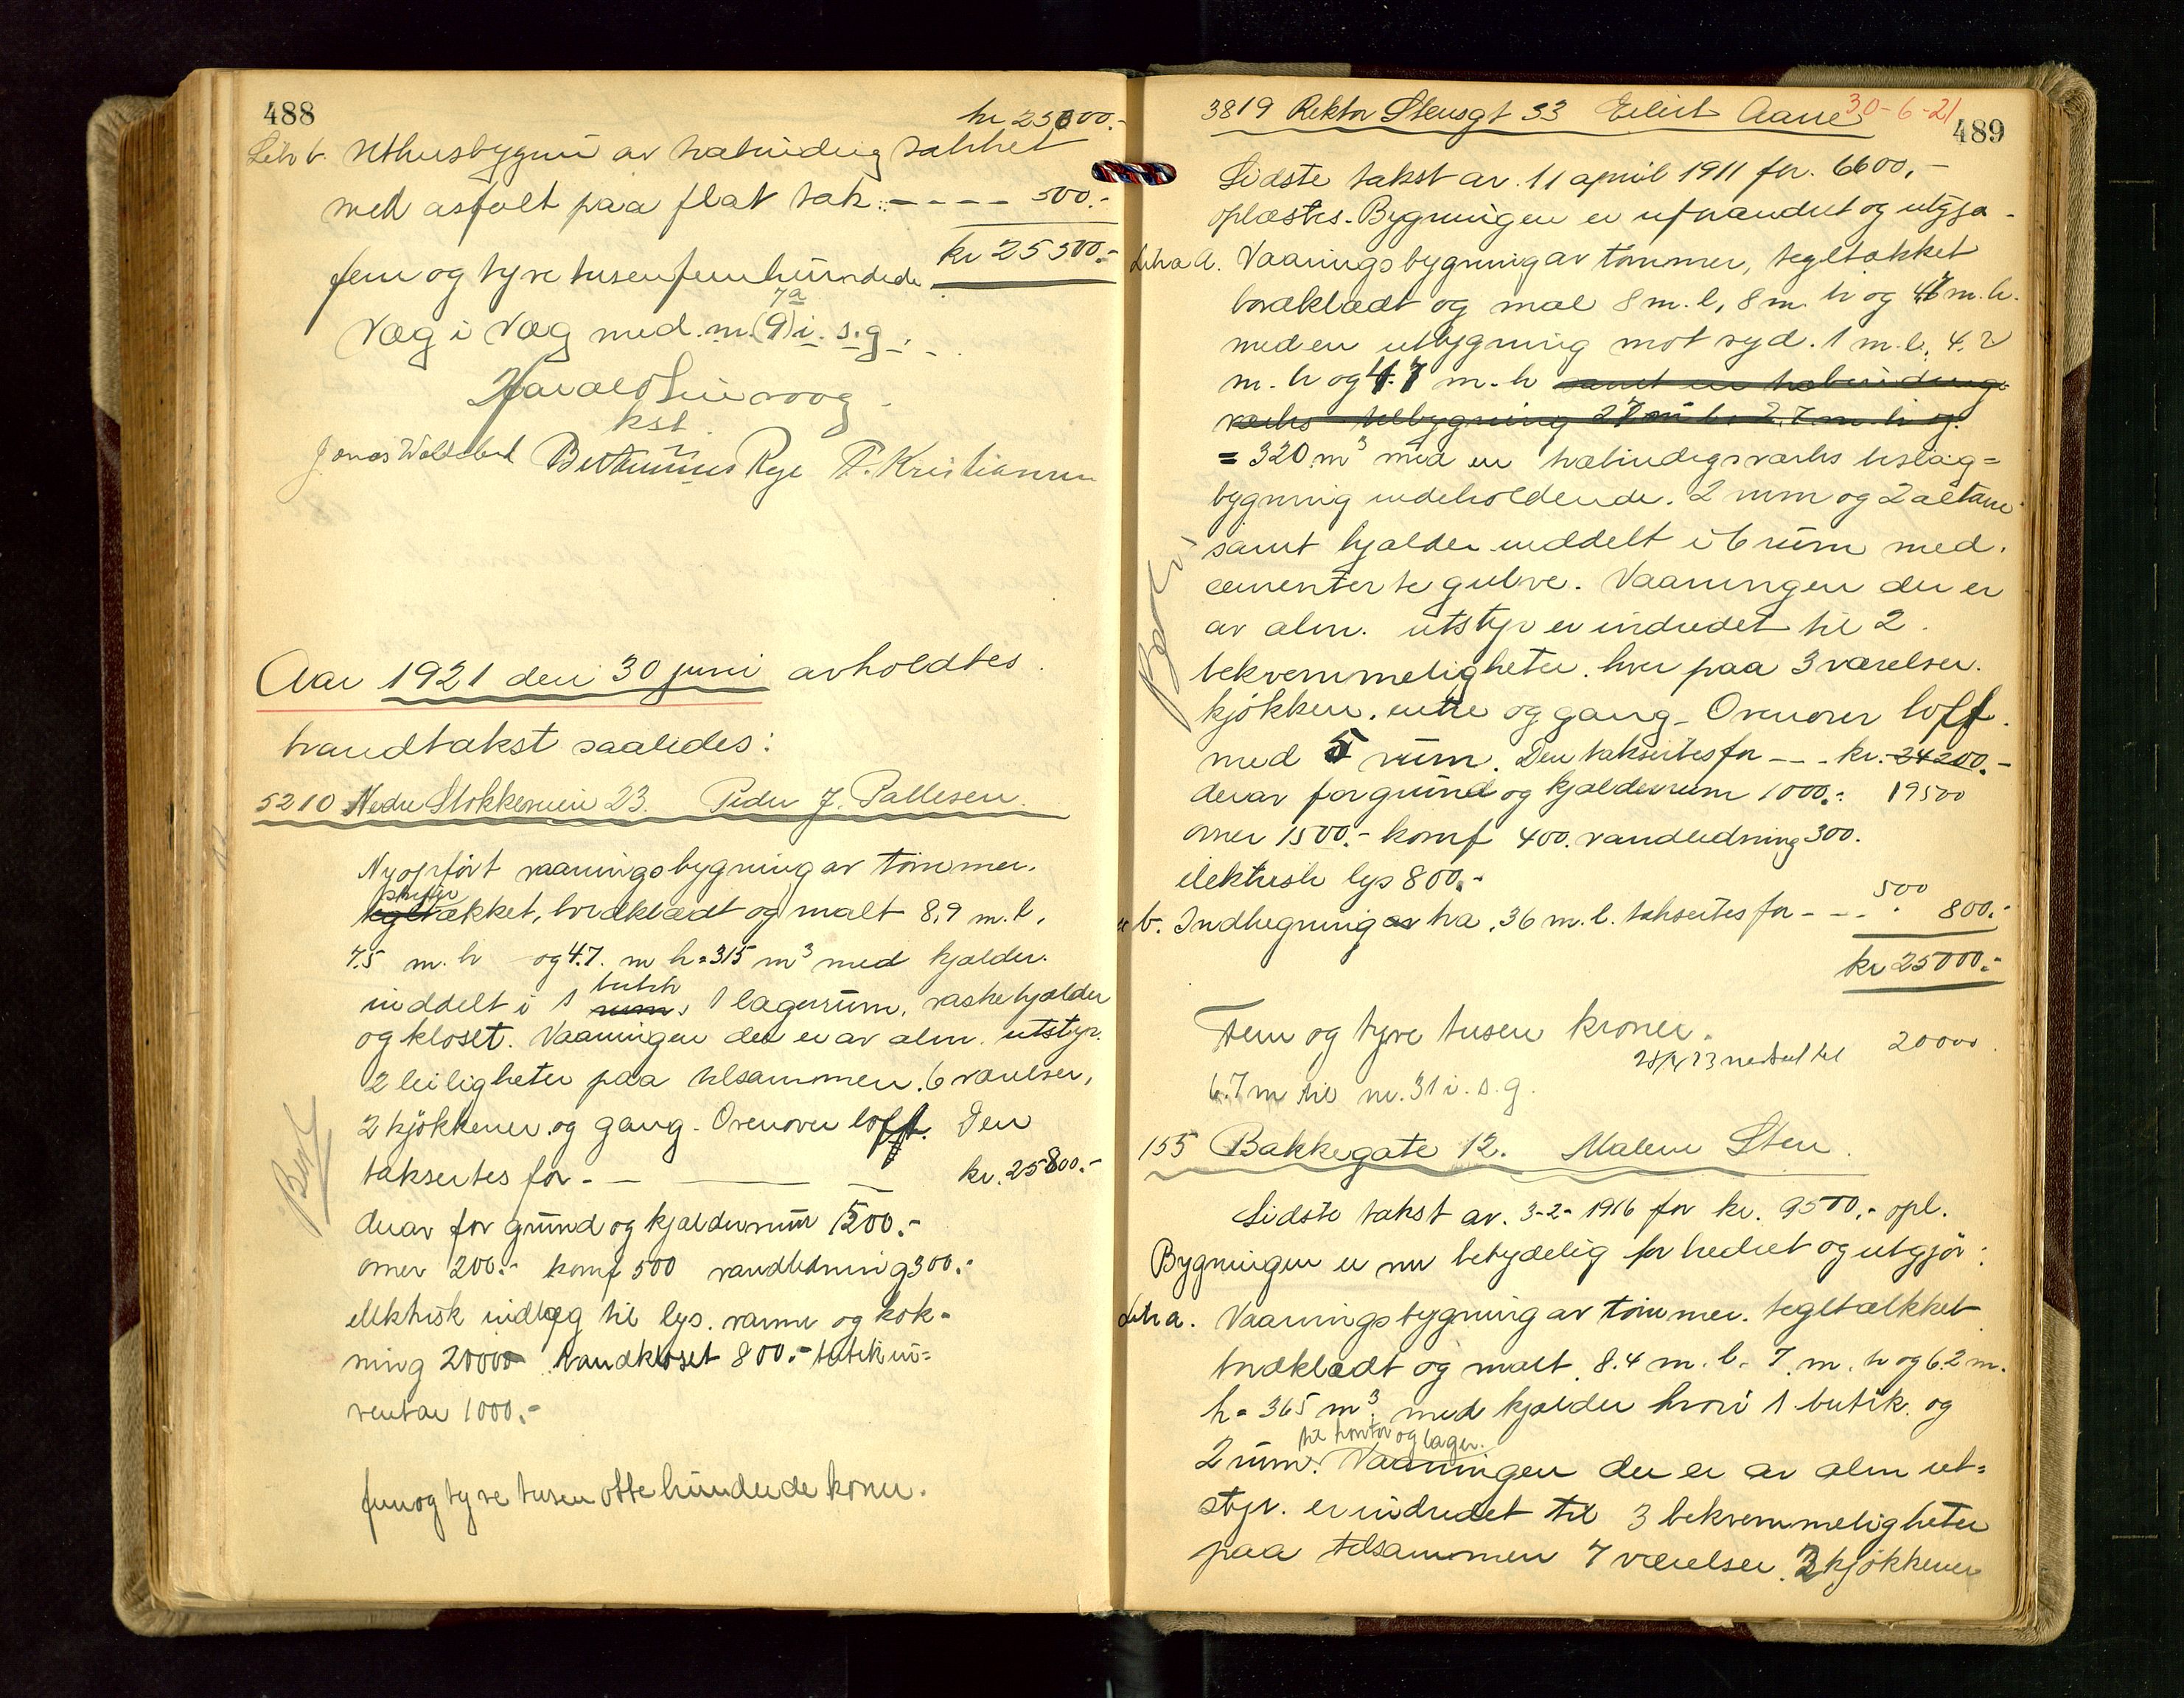 488
kr 25000.-
Litr b. Uthusbygni av træbinding tækket
med asfalt paa flat tak. - - - - 500.-
kr 25500.-
fem og tyve tusenfemhundrede
7a
Væg i Væg med. nr. (9) i. s.g.
kst.
Jonas Bertinius Rege P. Kristiansen
Aar 1921 den 30 juni avholdtes.
brandtakst saaledes:
5210 Nedre Stokkeveien 23. Peder J. Pallesen.
Nyopført vaaningsbygning av tømmer.
skifer
tegltækket, bordklædt og malt 8,9 m. l,
7.5 m. br og 4.7. m h = 315 m³ med kjelder.
butik
inddelt i 1 rum, 1 lagerrum, vaskekjælder
og kloset. Vaaningen der er av alm. utstyr.
2 leiligheter paa tilsammen 6 værelser,
2 kjøkkener og gang. Ovenover loft. Den
taksertes for - - - kr. 25800.-
Berg
derav for grund og kjælderrum 1500.-
ovner 200.- komf 500 vandledning 300.-
elektrisk indlæg til lys. varme og kok-
ning 2000 Vandkloset 800.- butikin-
ventar 1000.-
fem og tyve tusen otte hundrede kroner.
3819 Rektor Stensgt 33 Eilert Aane
30-6-21
489
Sidste takst av. 11 april 1911 for. 6600,-
oplæstes. Bygningen er uforandret og utgjø-
Litra a. Vaaningsbygning av tømmer, tegltækket
bordklædt og mal 8 m. l, 8 m. br og 4.7 m. h.
med en utbygning mot syd. 1 m. l, 4.2
m. br og 4.7 m. h samt en trebindings
verks tilbygning 2.7 m l. 2.7 m. br og
= 320 m³ med en træbindingsværks bislag-
bygning indeholdende. 2 rum og 2 altaner
samt kjælder inddelt i 6 rum med.
cementerte gulve. Vaaningen der er
av alm. utstyr er indredet til 2.
bekvemmeligheter. hver paa 3 værelser.
kjøkken. entre og gang. Ovenover loft.
med 5 rum. Den taksertes for - - - kr. 24200.-
derav for grund og kjælderrum 1000.- 19500
ovner 1500.- komf 400. vandledning 300.
elektrisk lys 800.-
500
" b. Indhegning av træ, 36 m. l. taksertes for - - - 800.-
kr 25000.-
Fem og tyve tusen kroner.
28/4 23 nedsat til 20000.
6.7 m til nr. 31 i. s. g.
155 Bakkegate 12. Malene Sten.
Sidste takst av. 3-2-1916 for kr. 9500.- opl.
Bygningen er nu betydelig forbedret og utgjør:
Litr a. Vaaningsbygning av tømmer. tegltækket
bordklædt og malt. 8.4 m. l. 7. m. br og 6.2 m.
h = 365 m³. med kjælder hvori 1 butik. og
til kontor og lager.
2 rum. Vaaningen der er av alm ut-
styr. er indredet til 3 bekvemmeligheter
paa tilsammen 7 værelser. 3 kjøkkener